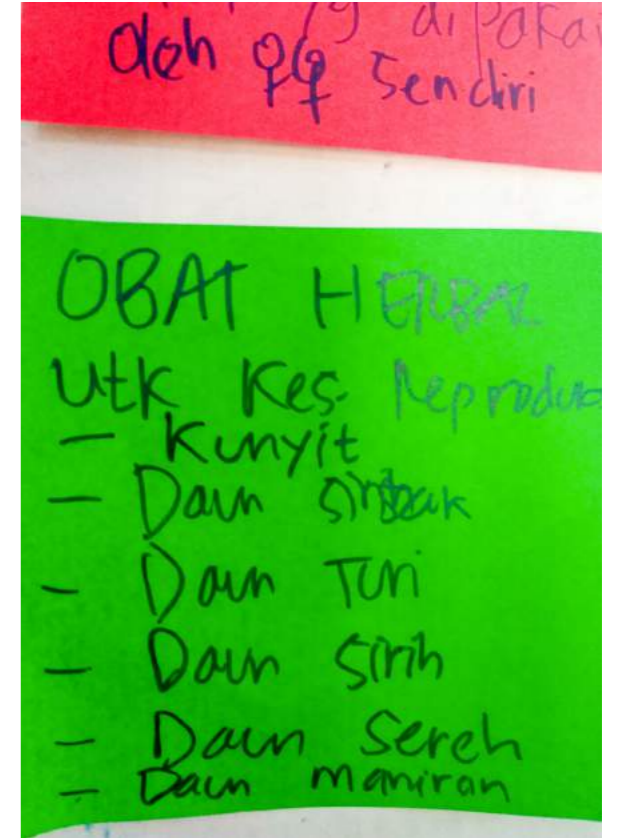 yg dipakai
oleh ♀♀ sendiri
OBAT HERBAL
Utk Kes. Reproduk
- Kunyit
- Daun
- Daun Turi
- Daun Sirih
- Daun Sereh
- Daun maniran